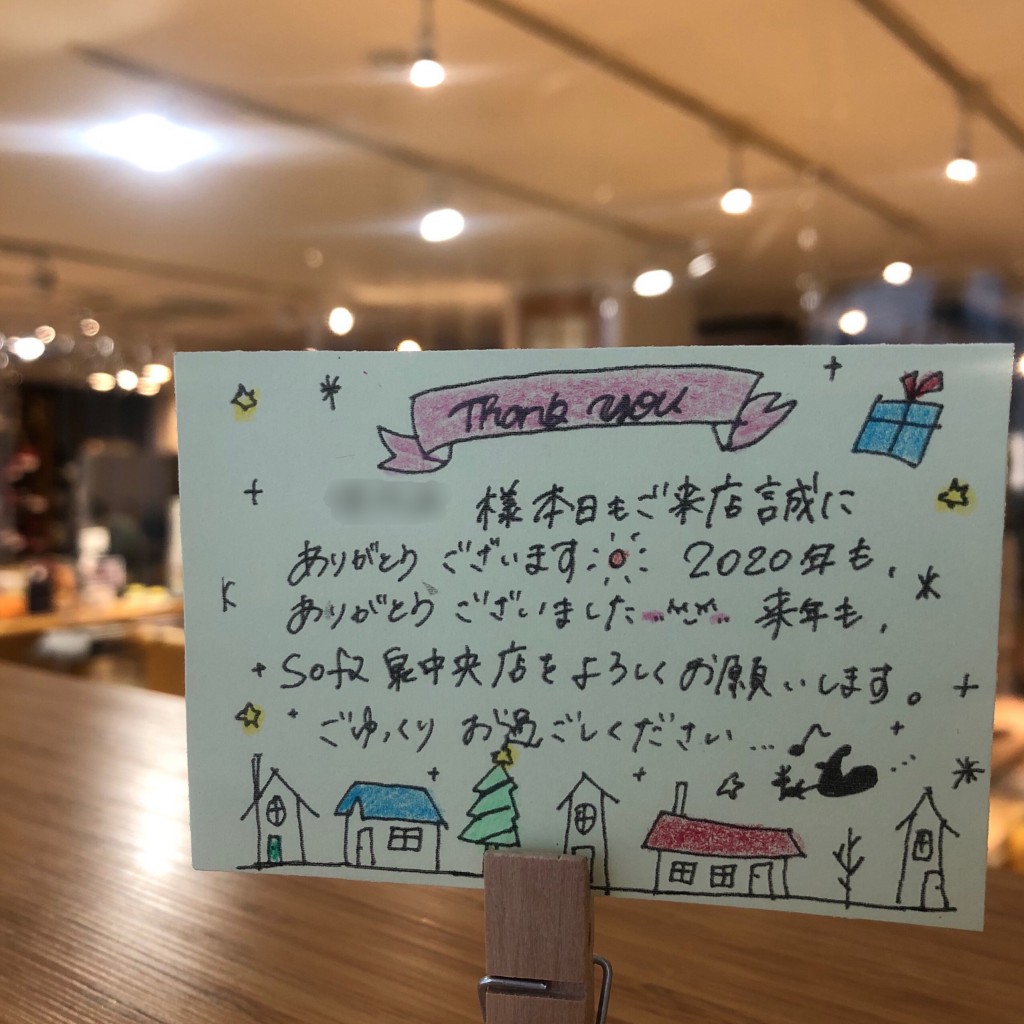 Thank you
様本日もご来店誠に
ありがとうございます 2020年も、
ありがとうございました... 来年も、
Sofa 泉中央店をよろしくお願いします。
ごゆっくりお過ごしください...